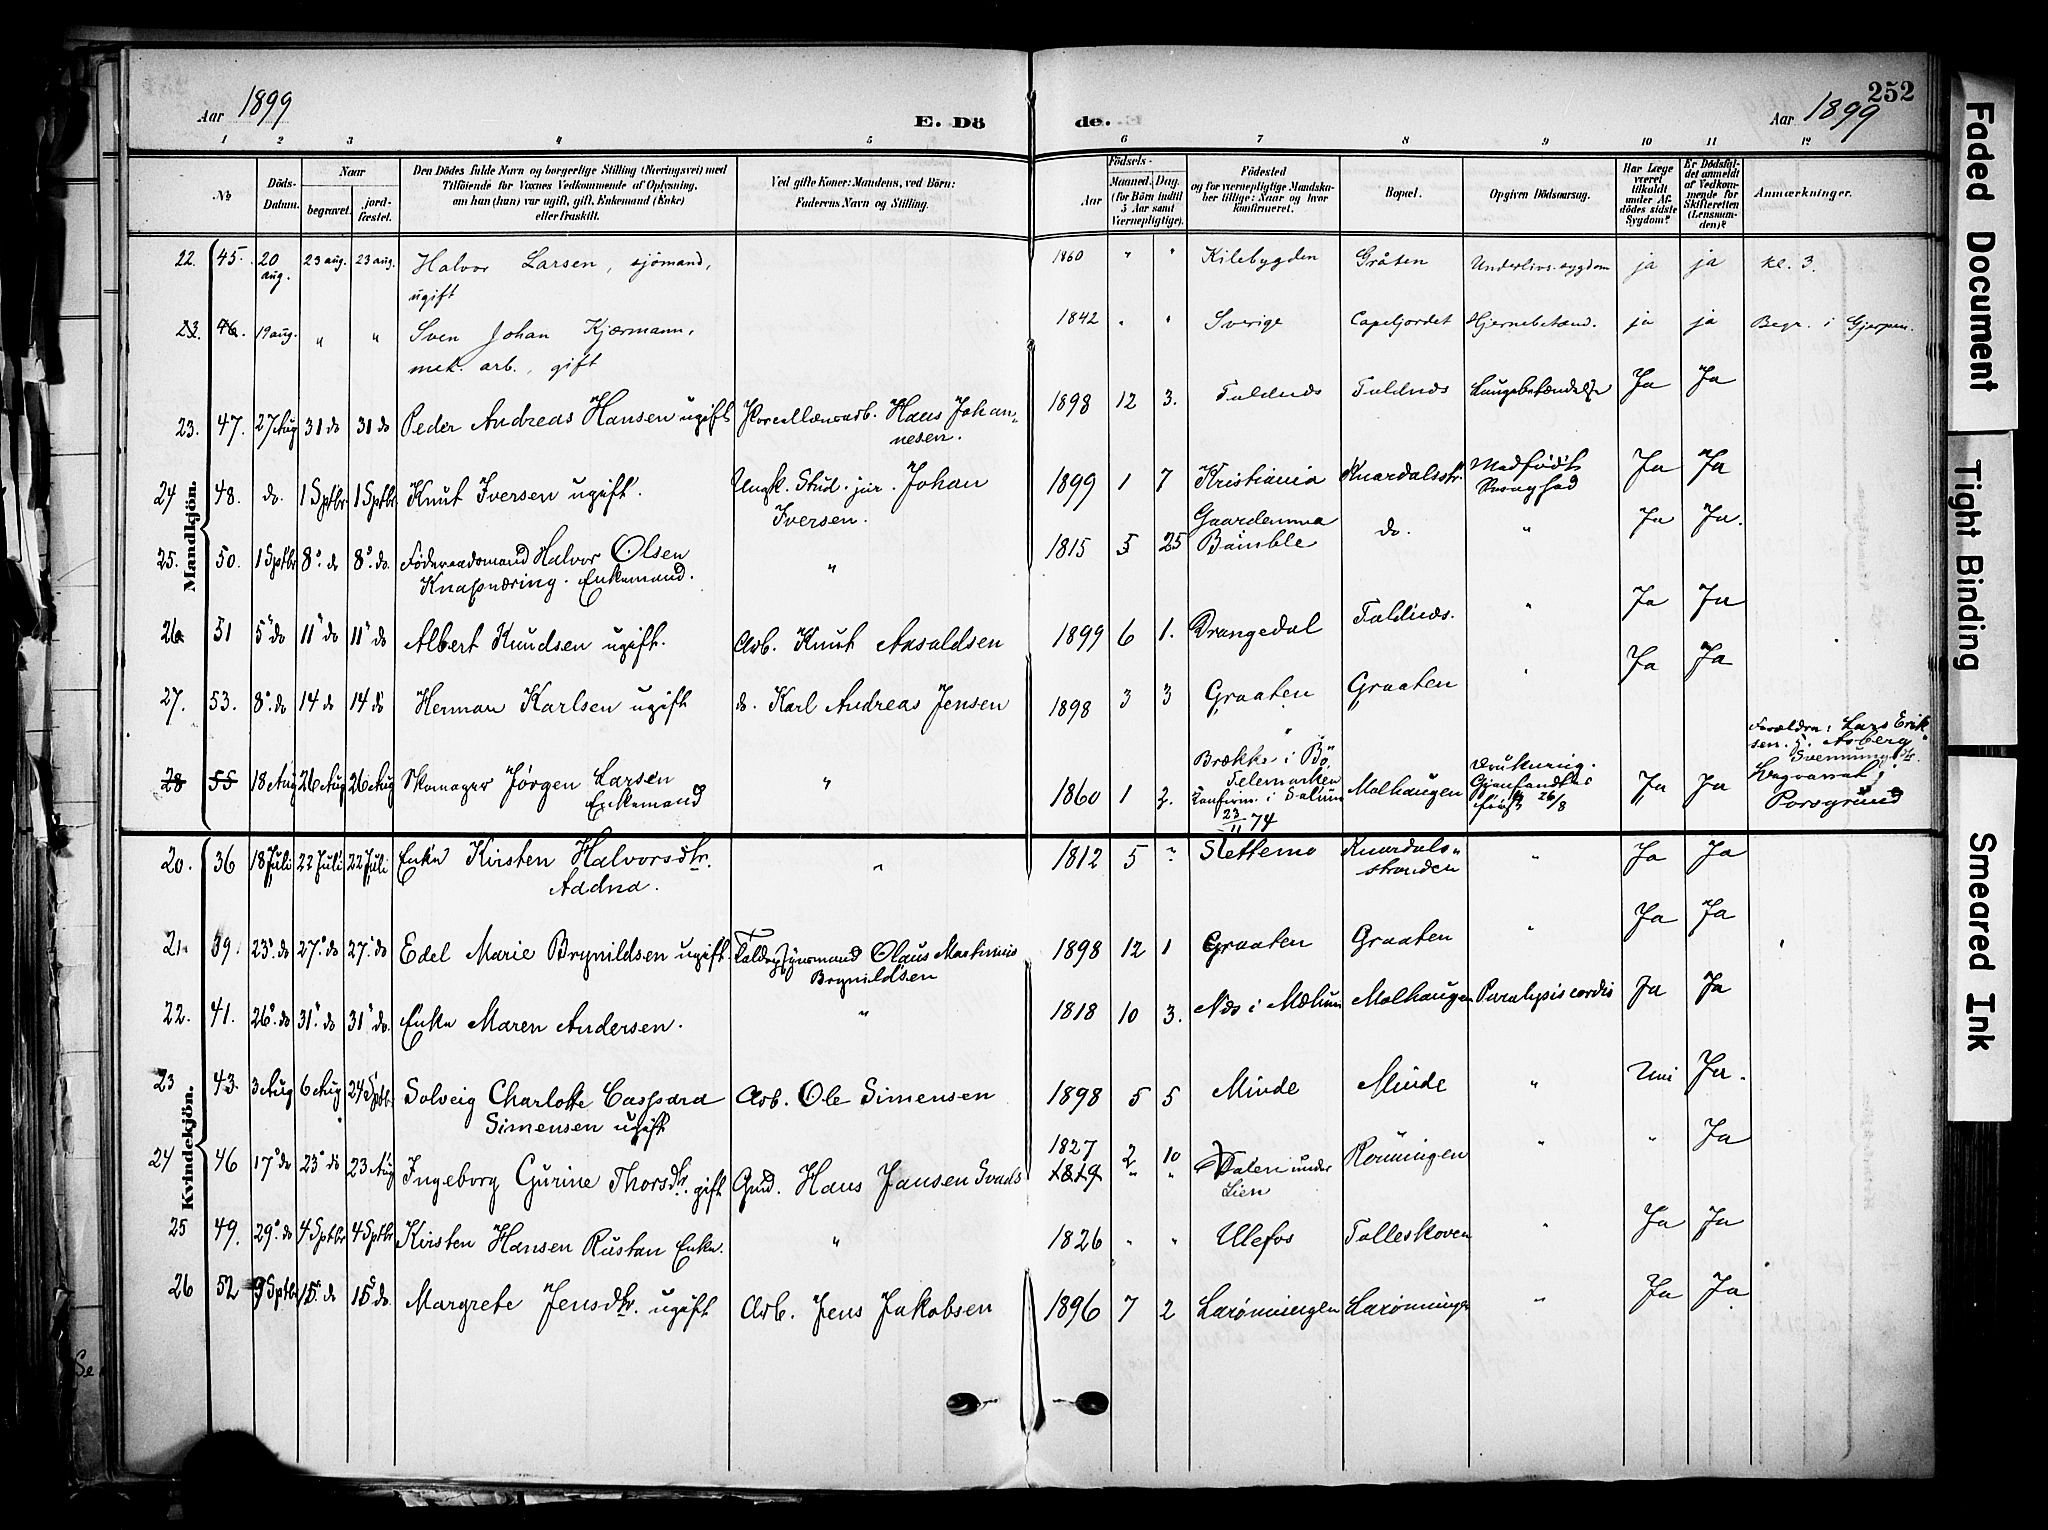 Aar 1899
E. Dö
de.
Aar 1899
252
1 2 3 4 5 6 7 8 9 10 11 12
№
Döds-Datum.
Naar
begravet.
jord-fæstet.
Den Dödes fulde Navn og borgerlige Stilling (Næringsvei) med
Tilföiende for Voxnes Vedkommende af Oplysning,
om han (hun) var ugift, gift, Enkemand (Enke)
eller fraskilt.
Ved gifte Koner: Mandens, ved Börn:
Faderens Navn og Stilling.
Födsels-
Aar
Maaned.
Dag.
(for Börn indtil
5 Aar samt
Værnepligtige).
Födested
og for værnepligtige Mandska-
ber tillige: Naar og hvor
konfirmeret.
Bopæl.
Opgiven Dödsaarsag.
Har Læge
været
tilkaldt
under Af-
dödes sidste
Sygdom?
Er Dödsfal-
det anmeldt
af Vedkom-
mende for
Skifteretten
(Lensman-
den)?
Anmærkninger.
Mandkjön.
22. 45. 20 aug. 23 aug. 23 aug. Halvor Larsen, sjömand, 1860 " " Kilebygden Gråten Underlivssygdom ja ja kl. 3.
ugift
23. 46. 19 aug. " " Sven Johan Kjærmann, 1842 " " Sverige Capeljordet Hjernebetænd. ja ja Begr. i Gjerpen.
mek. arb., gift
23. 47. 27 Aug 31 do 31 do Peder Andreas Hansen ugift Porcellænsarb. Hans Johan- 1898 12 3. Faldnæs Faldnæs Lungebetændelse Ja Ja
nesen.
24 48. do. 1 Sptbr 1 Sptbr Knut Iversen ugift. Ungk. Stud. jur. Johan 1899 1 7 Kristiania Knardalsstr. Medfödt Svaghed Ja Ja
Iversen.
25. 50. 1 Sptbr 8 do 8 do. Föderaadsmand Halvor Olsen " 1815 5 25 Bamble do. " Ja Ja.
Enkemand.
26 51 5 do 11 do 11 do Albert Knudsen ugift. Arb. Knut Aasoldsen 1899 6 1. Drangedal Faldnæs. " Ja Ja
27. 53. 8 do 14 do 14 do Herman Karlsen ugift do. Karl Andreas Jensen 1898 3 3 Graaten Graaten " Ja Ja
28 55 18 Aug 26 Aug 26 Aug Skomager Jørgen Larsen " 1860 1 2. Brække i Bö Telemarken Konfirm. i Solum 23/11 74 Molhaugen Drukning. Gjenfandtes först 26/8 Ja Ja Forældre: Lars Erik-
Enkemand
sen, Asberg
Svennungsdtr.
Porsgrund
Kvindekjön.
20. 36 18 Juli 22 Juli 22 Juli Enke Kirsten Halvorsdtr. " 1812 5 " Slettemo Knardals- " Ja Ja
stranden
21. 39. 23 do 27 do 27 do Edel Marie Brynildsen ugift. Olaus Martinius 1898 12 1 Graaten Graaten " Ja Ja
Brynildsen
22. 41. 26 do 31 do 31 do. Enke Maren Andersen. " 1818 10 3. Næs i Mælum Molhaugen Paralysis cordis Ja Ja
23 43. 3 Aug 6 Aug 24 Sptbr. Solveig Charlotte Caspara Arb. Ole Simensen 1898 5 5 Minde Minde " Nei Ja.
Simensen ugift
24 46 17 do 23 do 23 Aug Ingeborg Gurine Thorsdtr. gift Gmd. Hans Jansen 1827 2 10 Dalen under Rönningen " " Ja
1819 " " Lien
25 49. 29 do 4 Sptbr 4 Sptbr Kirsten Hansen Rustan Enke. " 1826 " " Ulefos Tolleskoven " Ja Ja
26 52 9 Sptbr 15 do 15 do. Margrete Jensdtr. ugift Arb. Jens Jakobsen 1896 7 2 Larönningen Larönningen " Ja Ja
Faded Document
Tight Binding
Smeared Ink